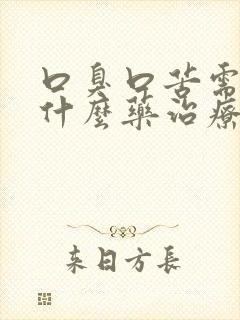 口臭口苦需
什麼藥治療
来日方長